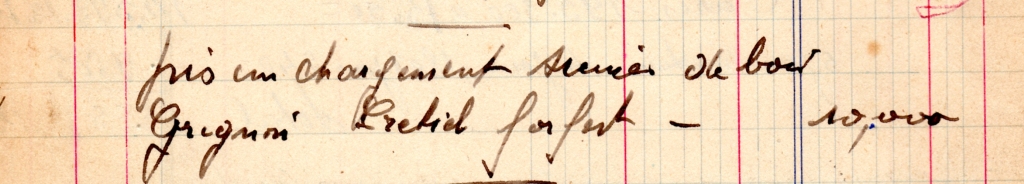 pris un chargement de bois
Grignon Creteil forfait — 10,000